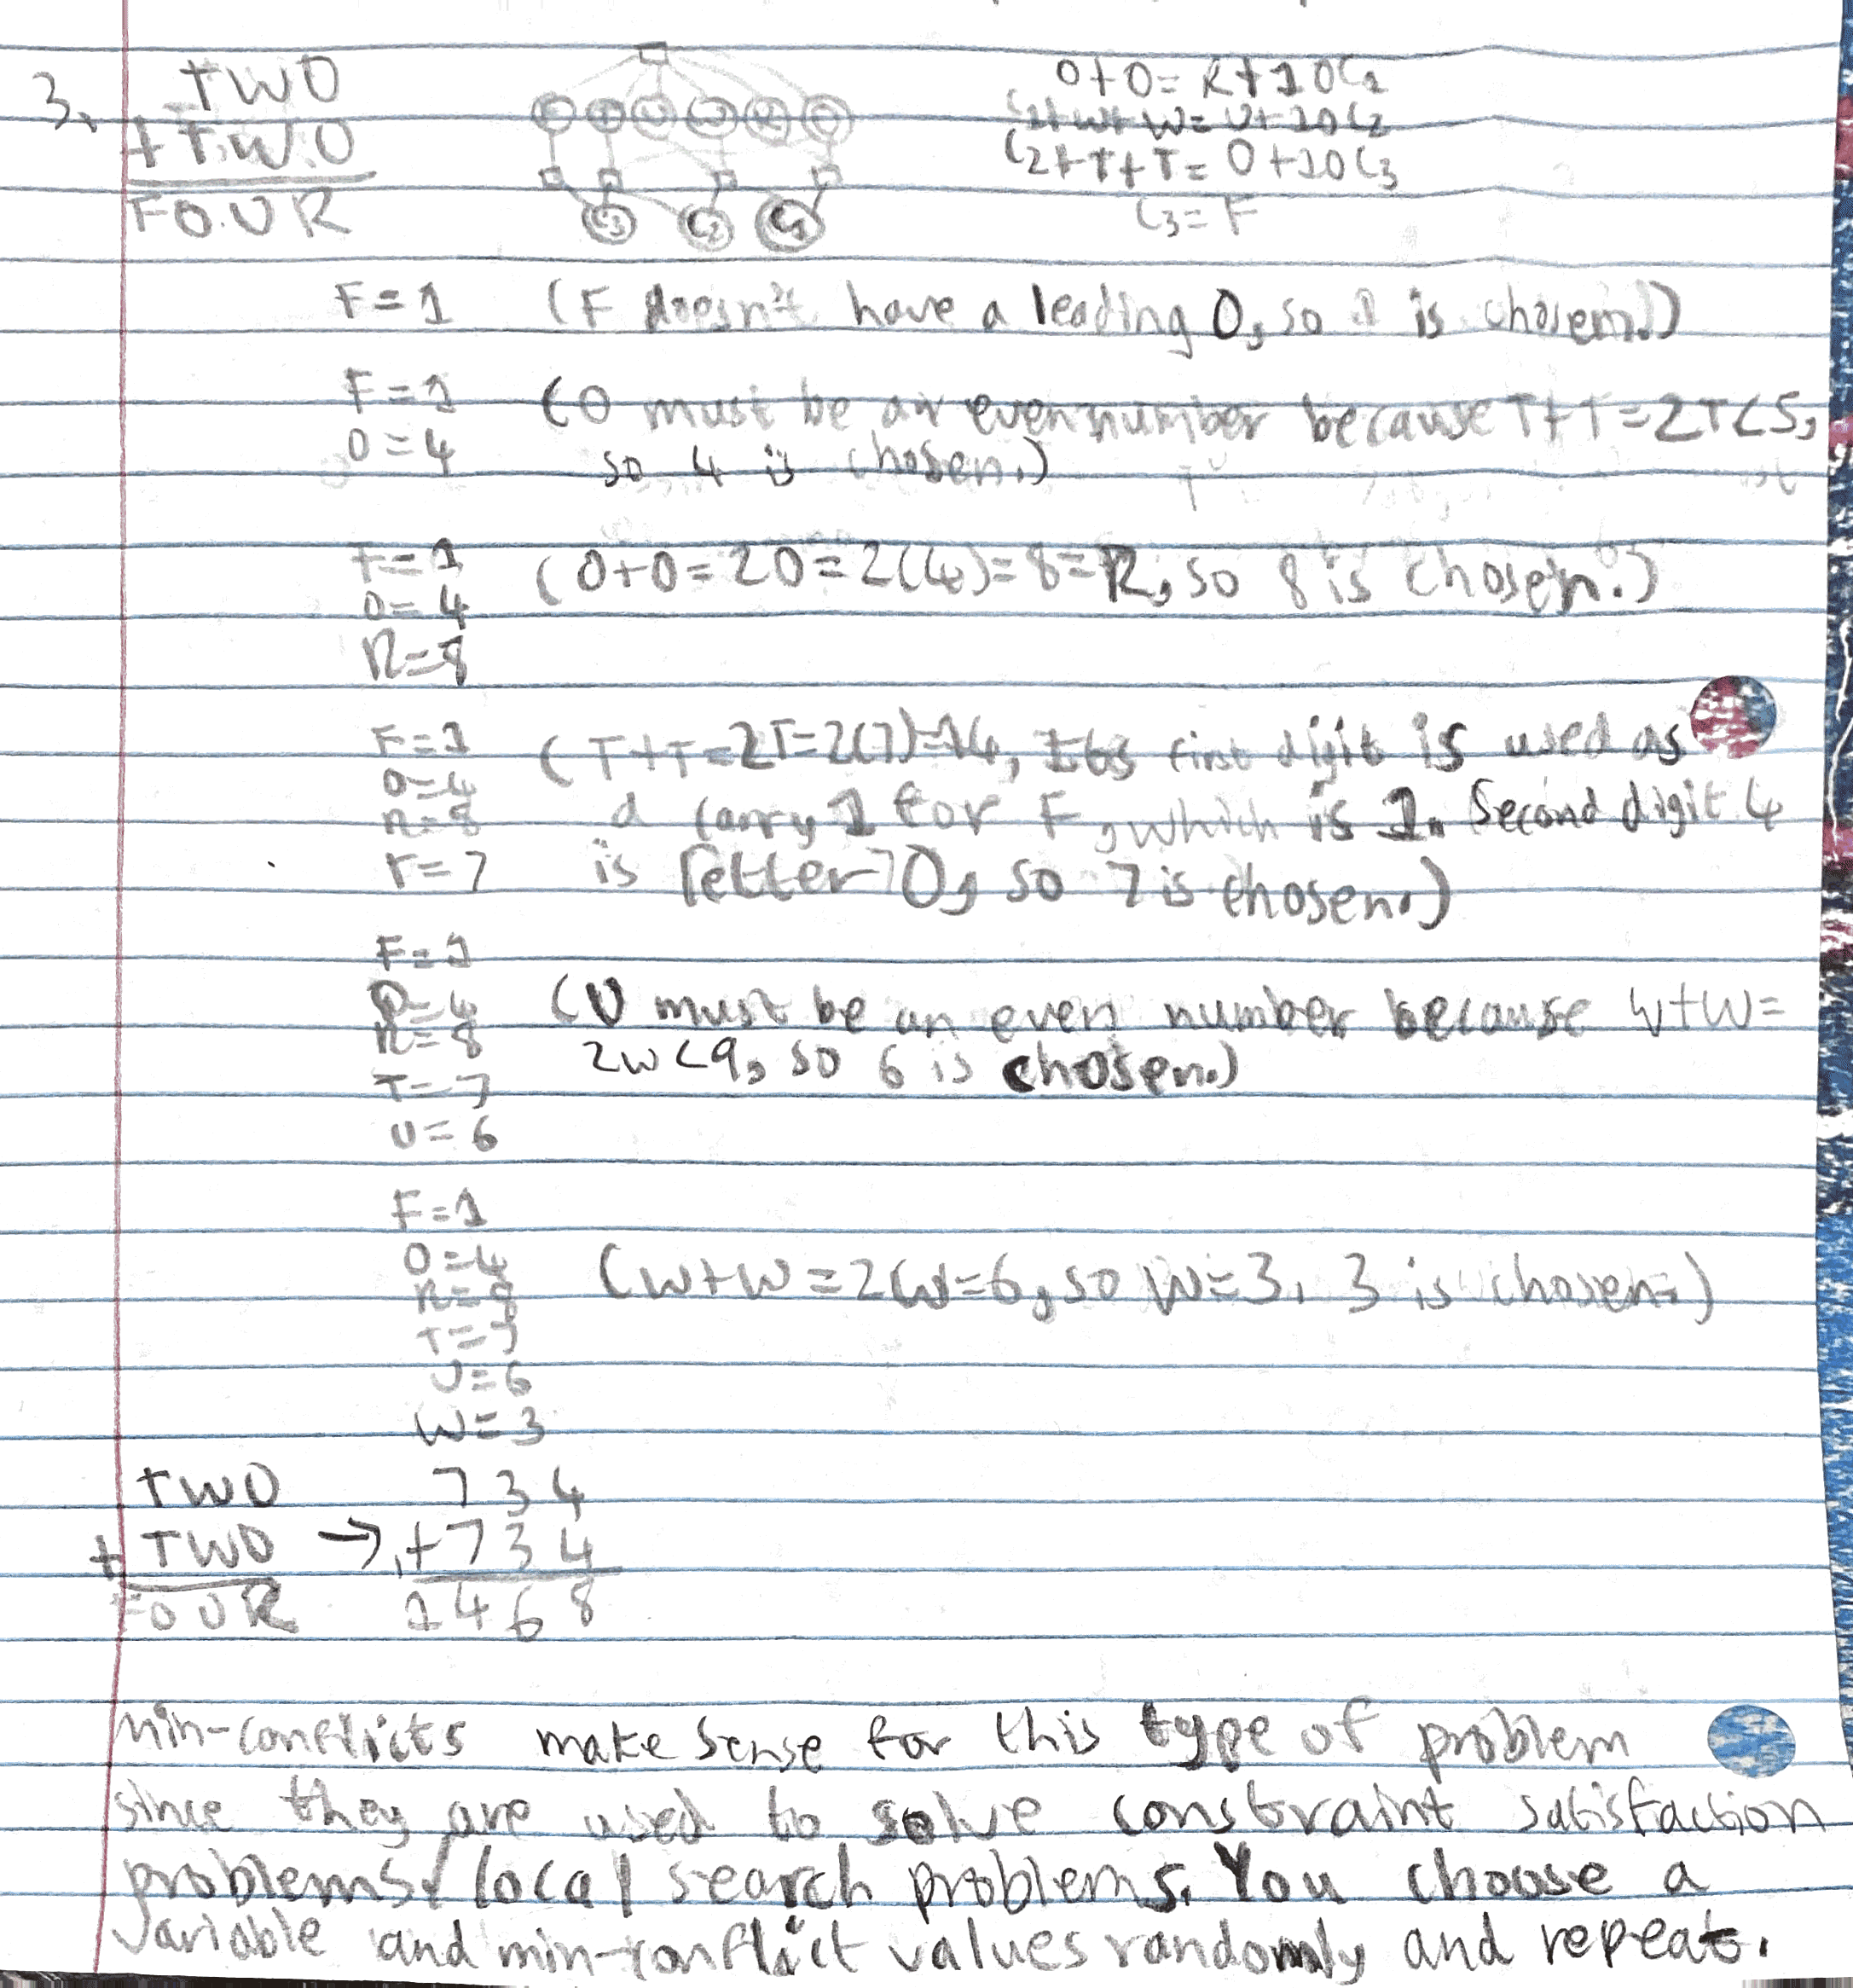 3. TWO
+ TWO
FOUR
F T U W R O
C3 C2 C1
O+O= R+10C1
C1+W+W= U+10C2
C2+T+T= O+10C3
C3= F
F=1 (F doesn't have a leading 0, so 1 is chosen.)
F=1 (O must be an even number because T+T=2T<5,
O=4 so 4 is chosen.)
F=1 (O+O=2O=2(4)=8=R, so 8 is chosen.)
O=4
R=8
F=1 (T+T=2T=2(7)=14, its first digit is used as
O=4 a carry 1 for F, which is 1. Second digit 4
R=8
T=7 is letter O, so 7 is chosen.)
F=1
O=4 (U must be an even number because W+W=
R=8 2W<9, so 6 is chosen.)
T=7
U=6
F=1
O=4 (W+W=2W=6, so W=3. 3 is chosen.)
R=8
T=7
U=6
W=3
TWO 734
+ TWO → +734
FOUR 1468
Min-conflicts make sense for this type of problem
since they are used to solve constraint satisfaction
problems/local search problems. You choose a
variable and min-conflict values randomly and repeat.